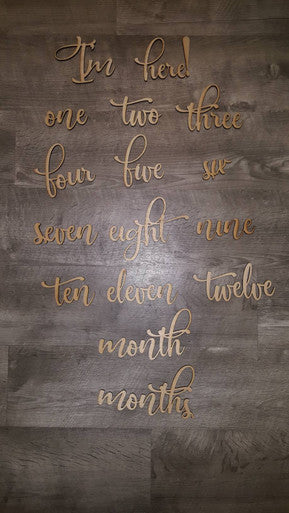 I'm here!
one two three
four five six
seven eight nine
ten eleven twelve
month
months